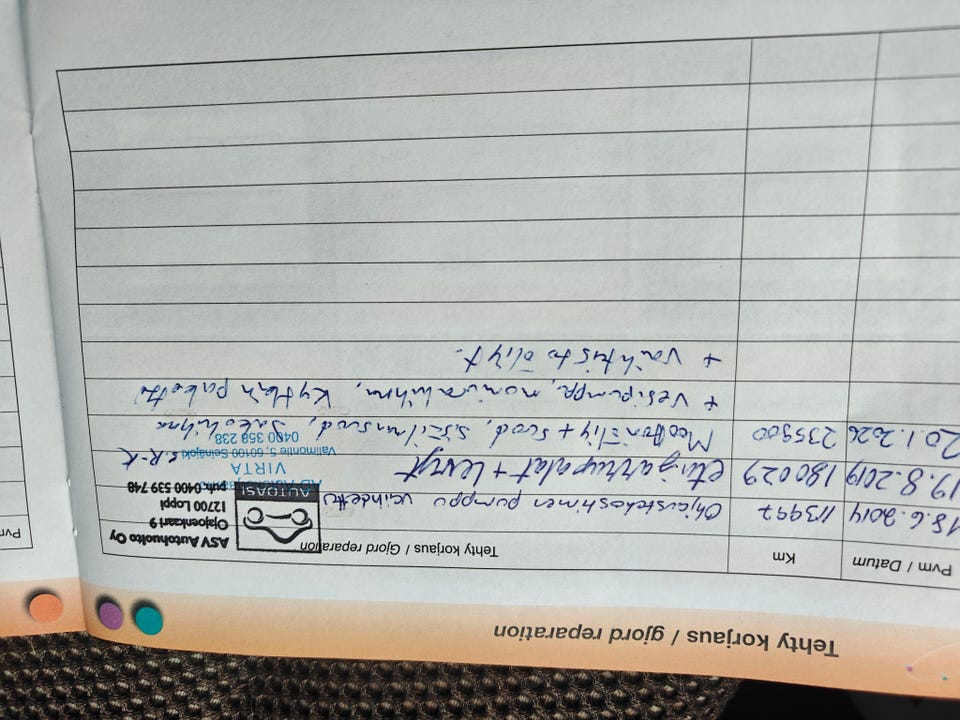 Tehty korjaus / gjord reparation
Pvm / Datum Km Tehty korjaus / Gjord reparation
18.6.2014 113997 Ohjaustehostimen pumppu vaihdettu
ASV Autohuolto Oy
Ojajoenkaari 9
12700 Loppi
puh 0400 539 748
AUTOASI
19.8.2019 180029 etujarrupalat + levyt
VIRTA
Valimontie 5, 60100 Seinäjoki
0400 358 238
S.R-K
20.1.2026 235900 Moottoriöljy + suod, sisäilmansuod, Jakohihna
+ vesipumppu, monirahihna, kytkin paketti
+ vaihteisto öljyt.
Pvm